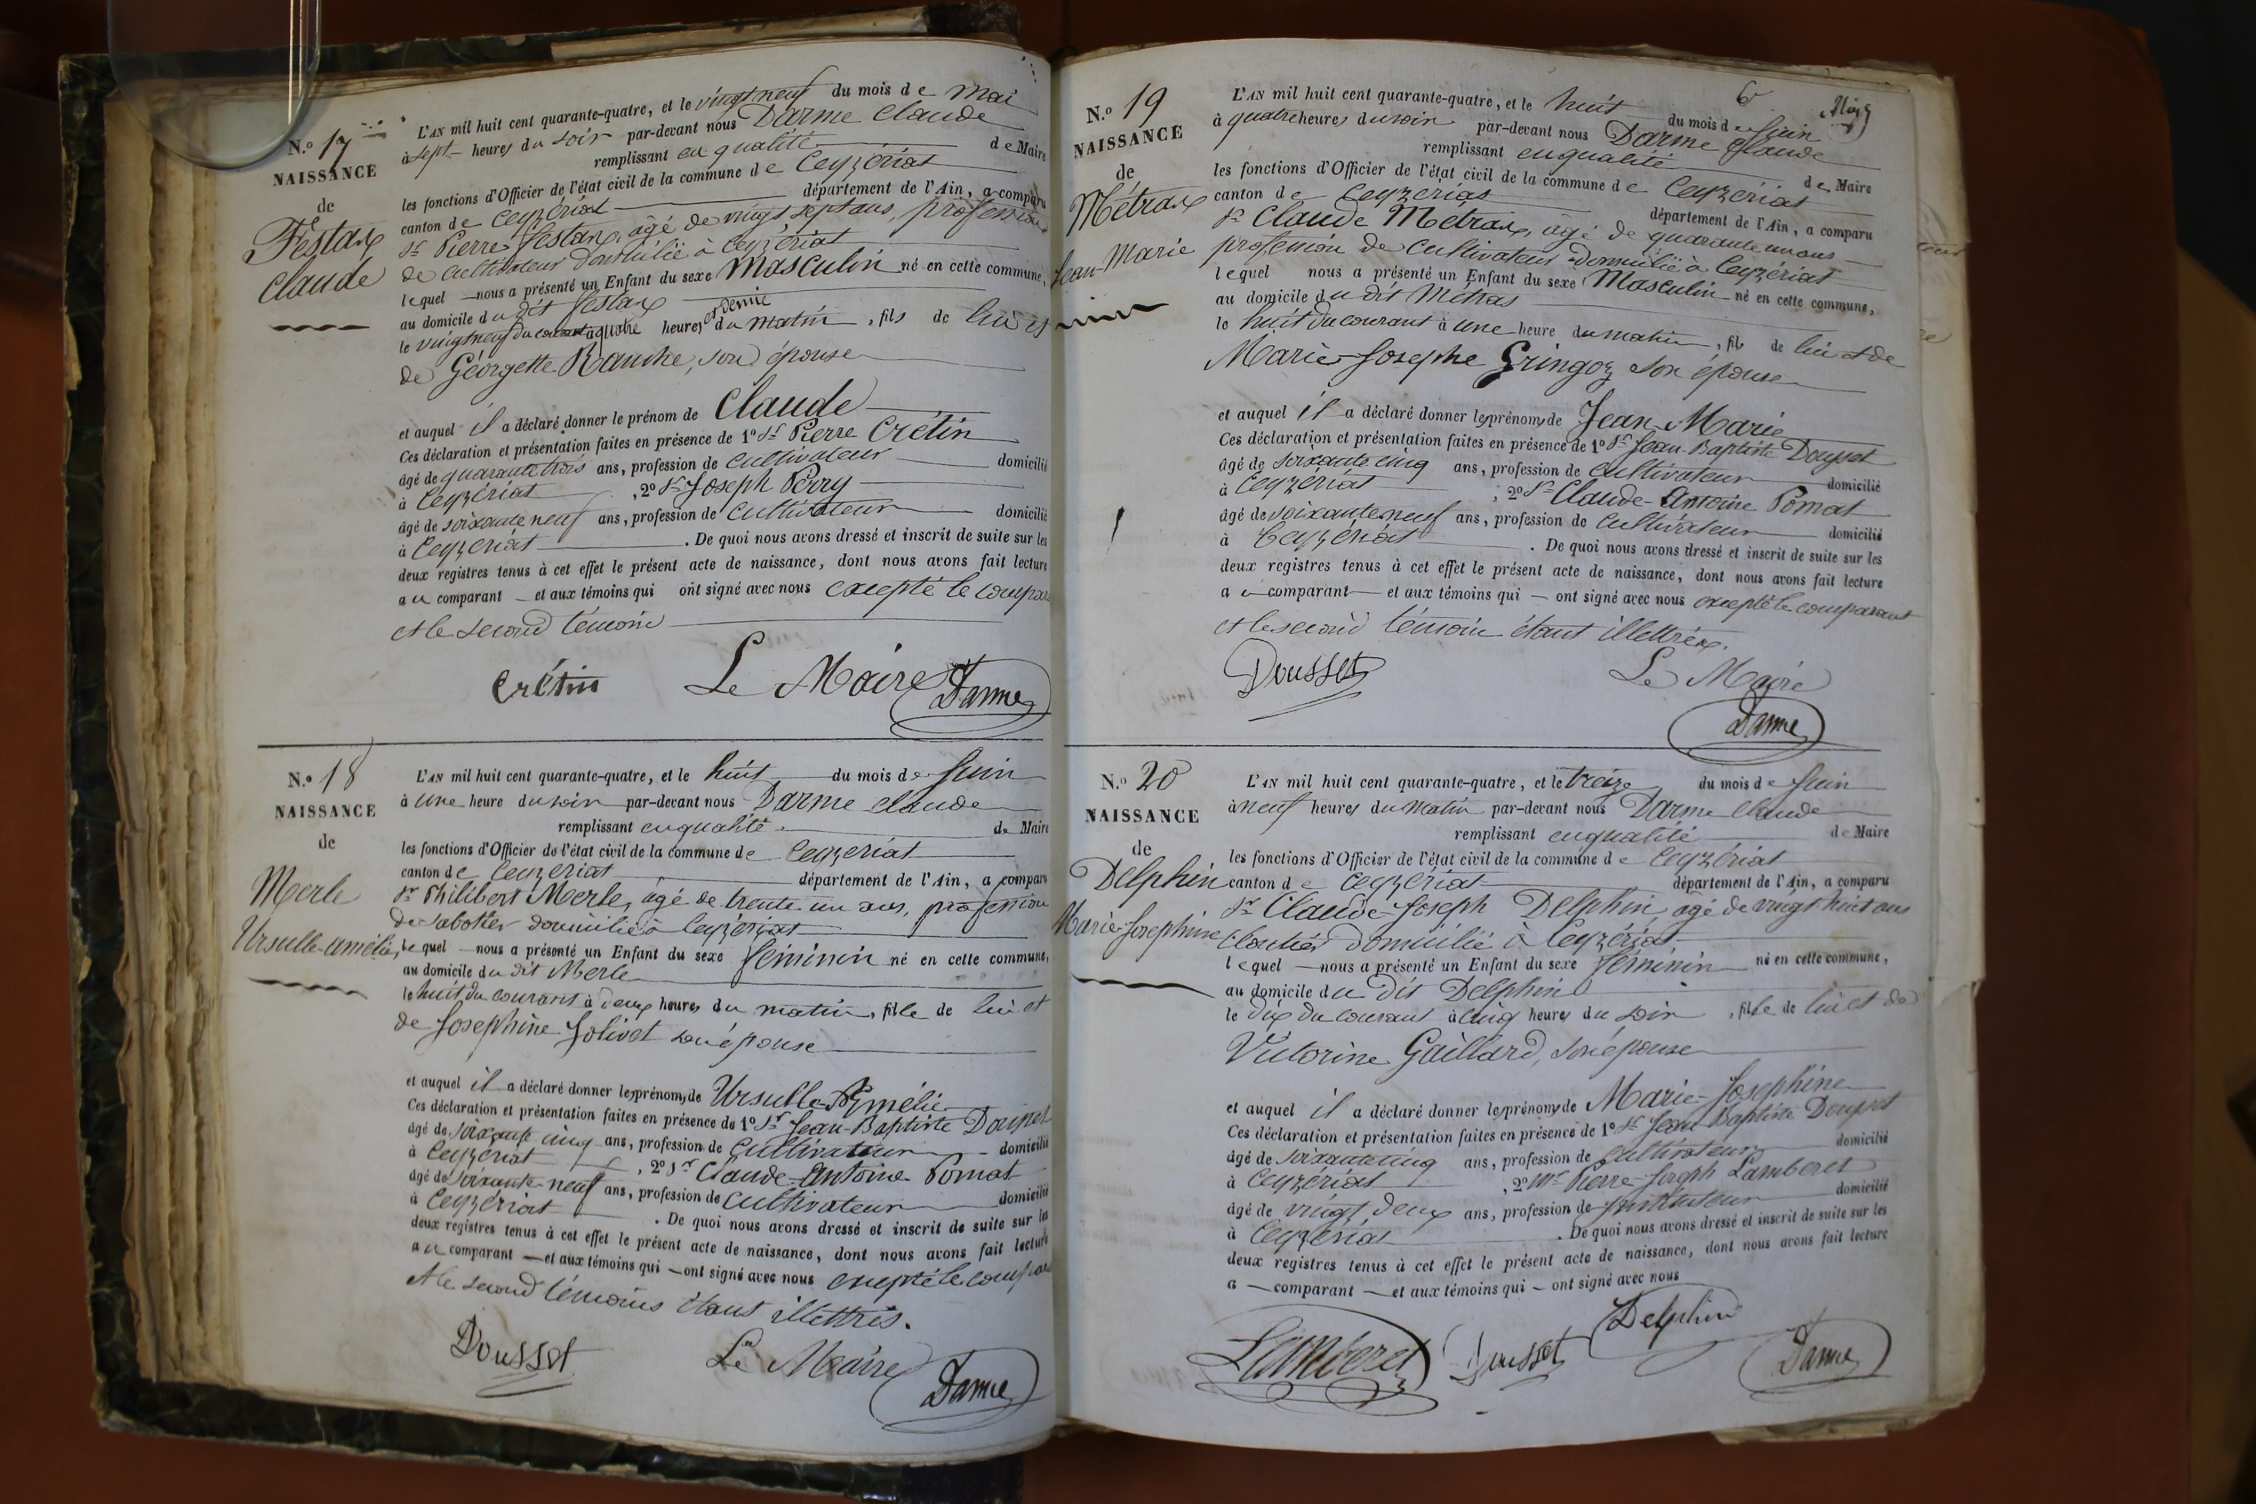 N.° 17
NAISSANCE
de
Festax
Claude
L'AN mil huit cent quarante-quatre, et le vingt neuf du mois de mai
à sept heures du soir par-devant nous Darme Claude
remplissant en qualité de Maire
les fonctions d'Officier de l'état civil de la commune de Ceyzériat
canton de Ceyzériat département de l'Ain, a comparu
Sr Pierre Festax, âgé de vingt sept ans, profession
de cultivateur domicilié à Ceyzériat
lequel nous a présenté un Enfant du sexe Masculin né en cette commune,
au domicile du dit Festax
le vingt neuf du courant à quatre heures et demie du matin, fils de lui et
de Géorgette Ranche, son épouse
et auquel il a déclaré donner le prénom de Claude
Ces déclaration et présentation faites en présence de 1° Sr Pierre Crétin
âgé de quarante trois ans, profession de cultivateur domicilié
à Ceyzériat, 2° Sr Joseph Perry
âgé de soixante neuf ans, profession de cultivateur domicilié
à Ceyzériat. De quoi nous avons dressé et inscrit de suite sur les
deux registres tenus à cet effet le présent acte de naissance, dont nous avons fait lecture
au comparant et aux témoins qui ont signé avec nous excepté le compara
et le second témoin
Crétin Le Maire Darme
N.° 18
NAISSANCE
de
Merle
Ursulle-amélie,
L'AN mil huit cent quarante-quatre, et le huit du mois de Juin
à une heure du soir par-devant nous Darme Claude
remplissant en qualité de Maire
les fonctions d'Officier de l'état civil de la commune de Ceyzeriat
canton de Ceyzériat département de l'Ain, a comparu
Sr Philibert Merle, âgé de trente un ans, profession
de sabotier domicilié à Ceyzériat
lequel nous a présenté un Enfant du sexe féminin né en cette commune,
au domicile du dit Merle
le huit du courant à deux heures du matin, fille de lui et
de Josephine Jolivet son épouse
et auquel il a déclaré donner les prénoms de Ursulle-Amélie
Ces déclaration et présentation faites en présence de 1° Sr Jean-Baptiste Dousset
âgé de soixante cinq ans, profession de Cultivateur domicilié
à Ceyzériat, 2° Sr Claude-Antoine Pomat
âgé de soixante-neuf ans, profession de cultivateur domicilié
à Ceyzériat. De quoi nous avons dressé et inscrit de suite sur les
deux registres tenus à cet effet le présent acte de naissance, dont nous avons fait lecture
au comparant et aux témoins qui ont signé avec nous excepté le compara
et le second témoins étant illettrés.
Dousset Le Maire Darme
6
N.° 19
NAISSANCE
de
Métrax
Jean-Marie
L'AN mil huit cent quarante-quatre, et le huit du mois de Juin
à quatre heures du soir par-devant nous Darme Claude
remplissant en qualité de Maire
les fonctions d'Officier de l'état civil de la commune de Ceyzériat
canton de Ceyzériat département de l'Ain, a comparu
Sr Claude Métrax, âgé de quarante un ans
profession de cultivateur domicilié à Ceyzériat
lequel nous a présenté un Enfant du sexe Masculin né en cette commune,
au domicile du dit Métras
le huit du courant à une heure du matin, fils de lui et de
Marie-Josephe Gringoz son épouse
et auquel il a déclaré donner les prénoms de Jean-Marie
Ces déclaration et présentation faites en présence de 1° Sr Jean-Baptiste Dousset
âgé de soixante cinq ans, profession de Cultivateur domicilié
à Ceyzériat, 2° Sr Claude-Antoine Pomat
âgé de soixante neuf ans, profession de cultivateur domicilié
à Ceyzériat. De quoi nous avons dressé et inscrit de suite sur les
deux registres tenus à cet effet le présent acte de naissance, dont nous avons fait lecture
au comparant et aux témoins qui ont signé avec nous excepté le comparant
et le second témoin étant illettrés.
Dousset Le Maire
Darme
N.° 20
NAISSANCE
de
Delphin
Marie-Josephine
L'AN mil huit cent quarante-quatre, et le treize du mois de Juin
à neuf heures du matin par-devant nous Darme Claude
remplissant en qualité de Maire
les fonctions d'Officier de l'état civil de la commune de Ceyzériat
canton de Ceyzériat département de l'Ain, a comparu
Sr Claude-Joseph Delphin, âgé de vingt huit ans
cloutier domicilié à Ceyzériat
lequel nous a présenté un Enfant du sexe féminin né en cette commune,
au domicile du dit Delphin
le dix du courant à cinq heures du soir, fille de lui et de
Victorine Gaillard, son épouse
et auquel il a déclaré donner les prénoms de Marie-Josephine
Ces déclaration et présentation faites en présence de 1° Sr Jean-Baptiste Dousset
âgé de soixante cinq ans, profession de cultivateur domicilié
à Ceyzériat, 2° Mr Pierre-Joseph Lamberet
âgé de vingt deux ans, profession de Instituteur domicilié
à Ceyzériat. De quoi nous avons dressé et inscrit de suite sur les
deux registres tenus à cet effet le présent acte de naissance, dont nous avons fait lecture
a comparant et aux témoins qui ont signé avec nous
Lamberet Dousset Delphin Darme